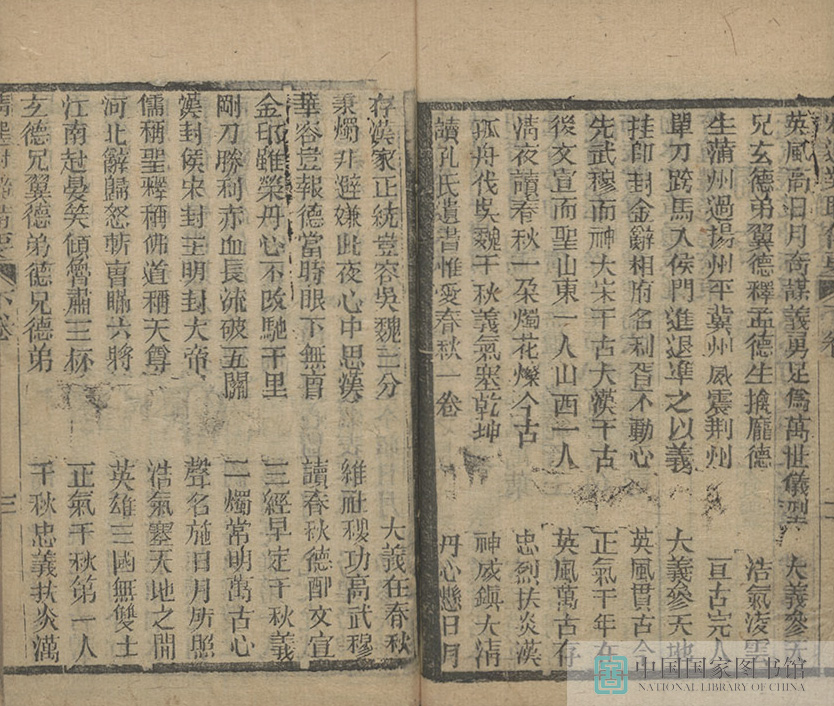 英風高日月奇謀義勇足爲萬世儀型　大義參天
兄玄德弟翼德釋孟德生擒龐德　浩氣凌雲
生蒲州過揚州平冀州威震荊州　亘古完人
單刀跨馬入侯門進退準之以義　大義參天地
挂印封金辭相府名利胥不動心　英風貫古今
先武穆而神大宋千古大漢千古　正氣千年在
後文宣而聖山東一人山西一人　英風萬古存
淸夜讀春秋一朶燭花燦今古　忠烈扶炎漢
孤舟伐吳魏千秋義氣塞乾坤　神威鎭大淸
讀孔氏遺書惟愛春秋一卷　丹心懸日月
存漢家正統豈容吳魏三分　大義在春秋
秉燭非避嫌此夜心中思漢　維社稷功高武穆
華容豈報德當時眼下無曹　讀春秋德配文宣
金印雖榮丹心不改馳千里　三經早定千秋義
剛刀勝利赤血長流破五關　一燭常明萬古心
漢封侯宋封王明封大帝　聲名施日月所照
儒稱聖釋稱佛道稱天尊　浩氣塞天地之間
河北辭歸怒斬曹瞞六將　英雄三國無雙士
江南赴宴笑傾魯肅三杯　正氣千秋第一人
玄德兄翼德弟德兄德弟　千秋忠義扶炎漢
下卷　三
中国国家图书馆
NATIONAL LIBRARY OF CHINA